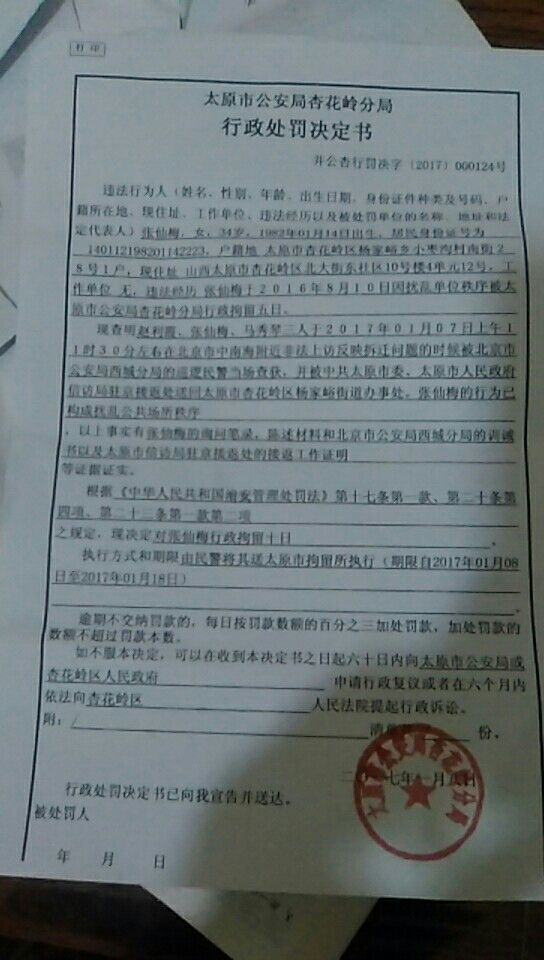 打印
太原市公安局杏花岭分局
行政处罚决定书
并公杏行罚决字〔2017〕000124号
违法行为人（姓名、性别、年龄、出生日期、身份证件种类及号码、户
籍所在地、现住址、工作单位、违法经历以及被处罚单位的名称、地址和法
定代表人）张仙梅，女，34岁，1982年01月14日出生，居民身份证号为
140112198201142223，户籍地 太原市杏花岭区杨家峪乡小枣沟村南街2
8号1户，现住址 山西太原市杏花岭区北大街东社区10号楼4单元12号，工
作单位 无，违法经历 张仙梅于2016年8月10日因扰乱单位秩序被太
原市公安局杏花岭分局行政拘留五日。
现查明赵利霞、张仙梅、马秀琴三人于2017年01月07日上午1
1时30分左右在北京市中南海附近非法上访反映拆迁问题的时候被北京市
公安局西城分局的巡逻民警当场查获，并被中共太原市委、太原市人民政府
信访局驻京接返处送回太原市杏花岭区杨家峪街道办事处。张仙梅的行为已
构成扰乱公共场所秩序
，以上事实有张仙梅的询问笔录，陈述材料和北京市公安局西城分局的训诫
书以及太原市信访局驻京接返处的接返工作证明
等证据证实。
根据《中华人民共和国治安管理处罚法》第十七条第一款、第二十条第
四项、第二十三条第一款第二项
之规定，现决定对张仙梅行政拘留十日。
执行方式和期限由民警将其送太原市拘留所执行（期限自2017年01月08
日至2017年01月18日）
。
逾期不交纳罚款的，每日按罚款数额的百分之三加处罚款，加处罚款的
数额不超过罚款本数。
如不服本决定，可以在收到本决定书之日起六十日内向太原市公安局或
杏花岭区人民政府 申请行政复议或者在六个月内
依法向杏花岭区 人民法院提起行政诉讼。
附：/ 清单 份。
二〇一七年一月八日
行政处罚决定书已向我宣告并送达。
被处罚人
年 月 日